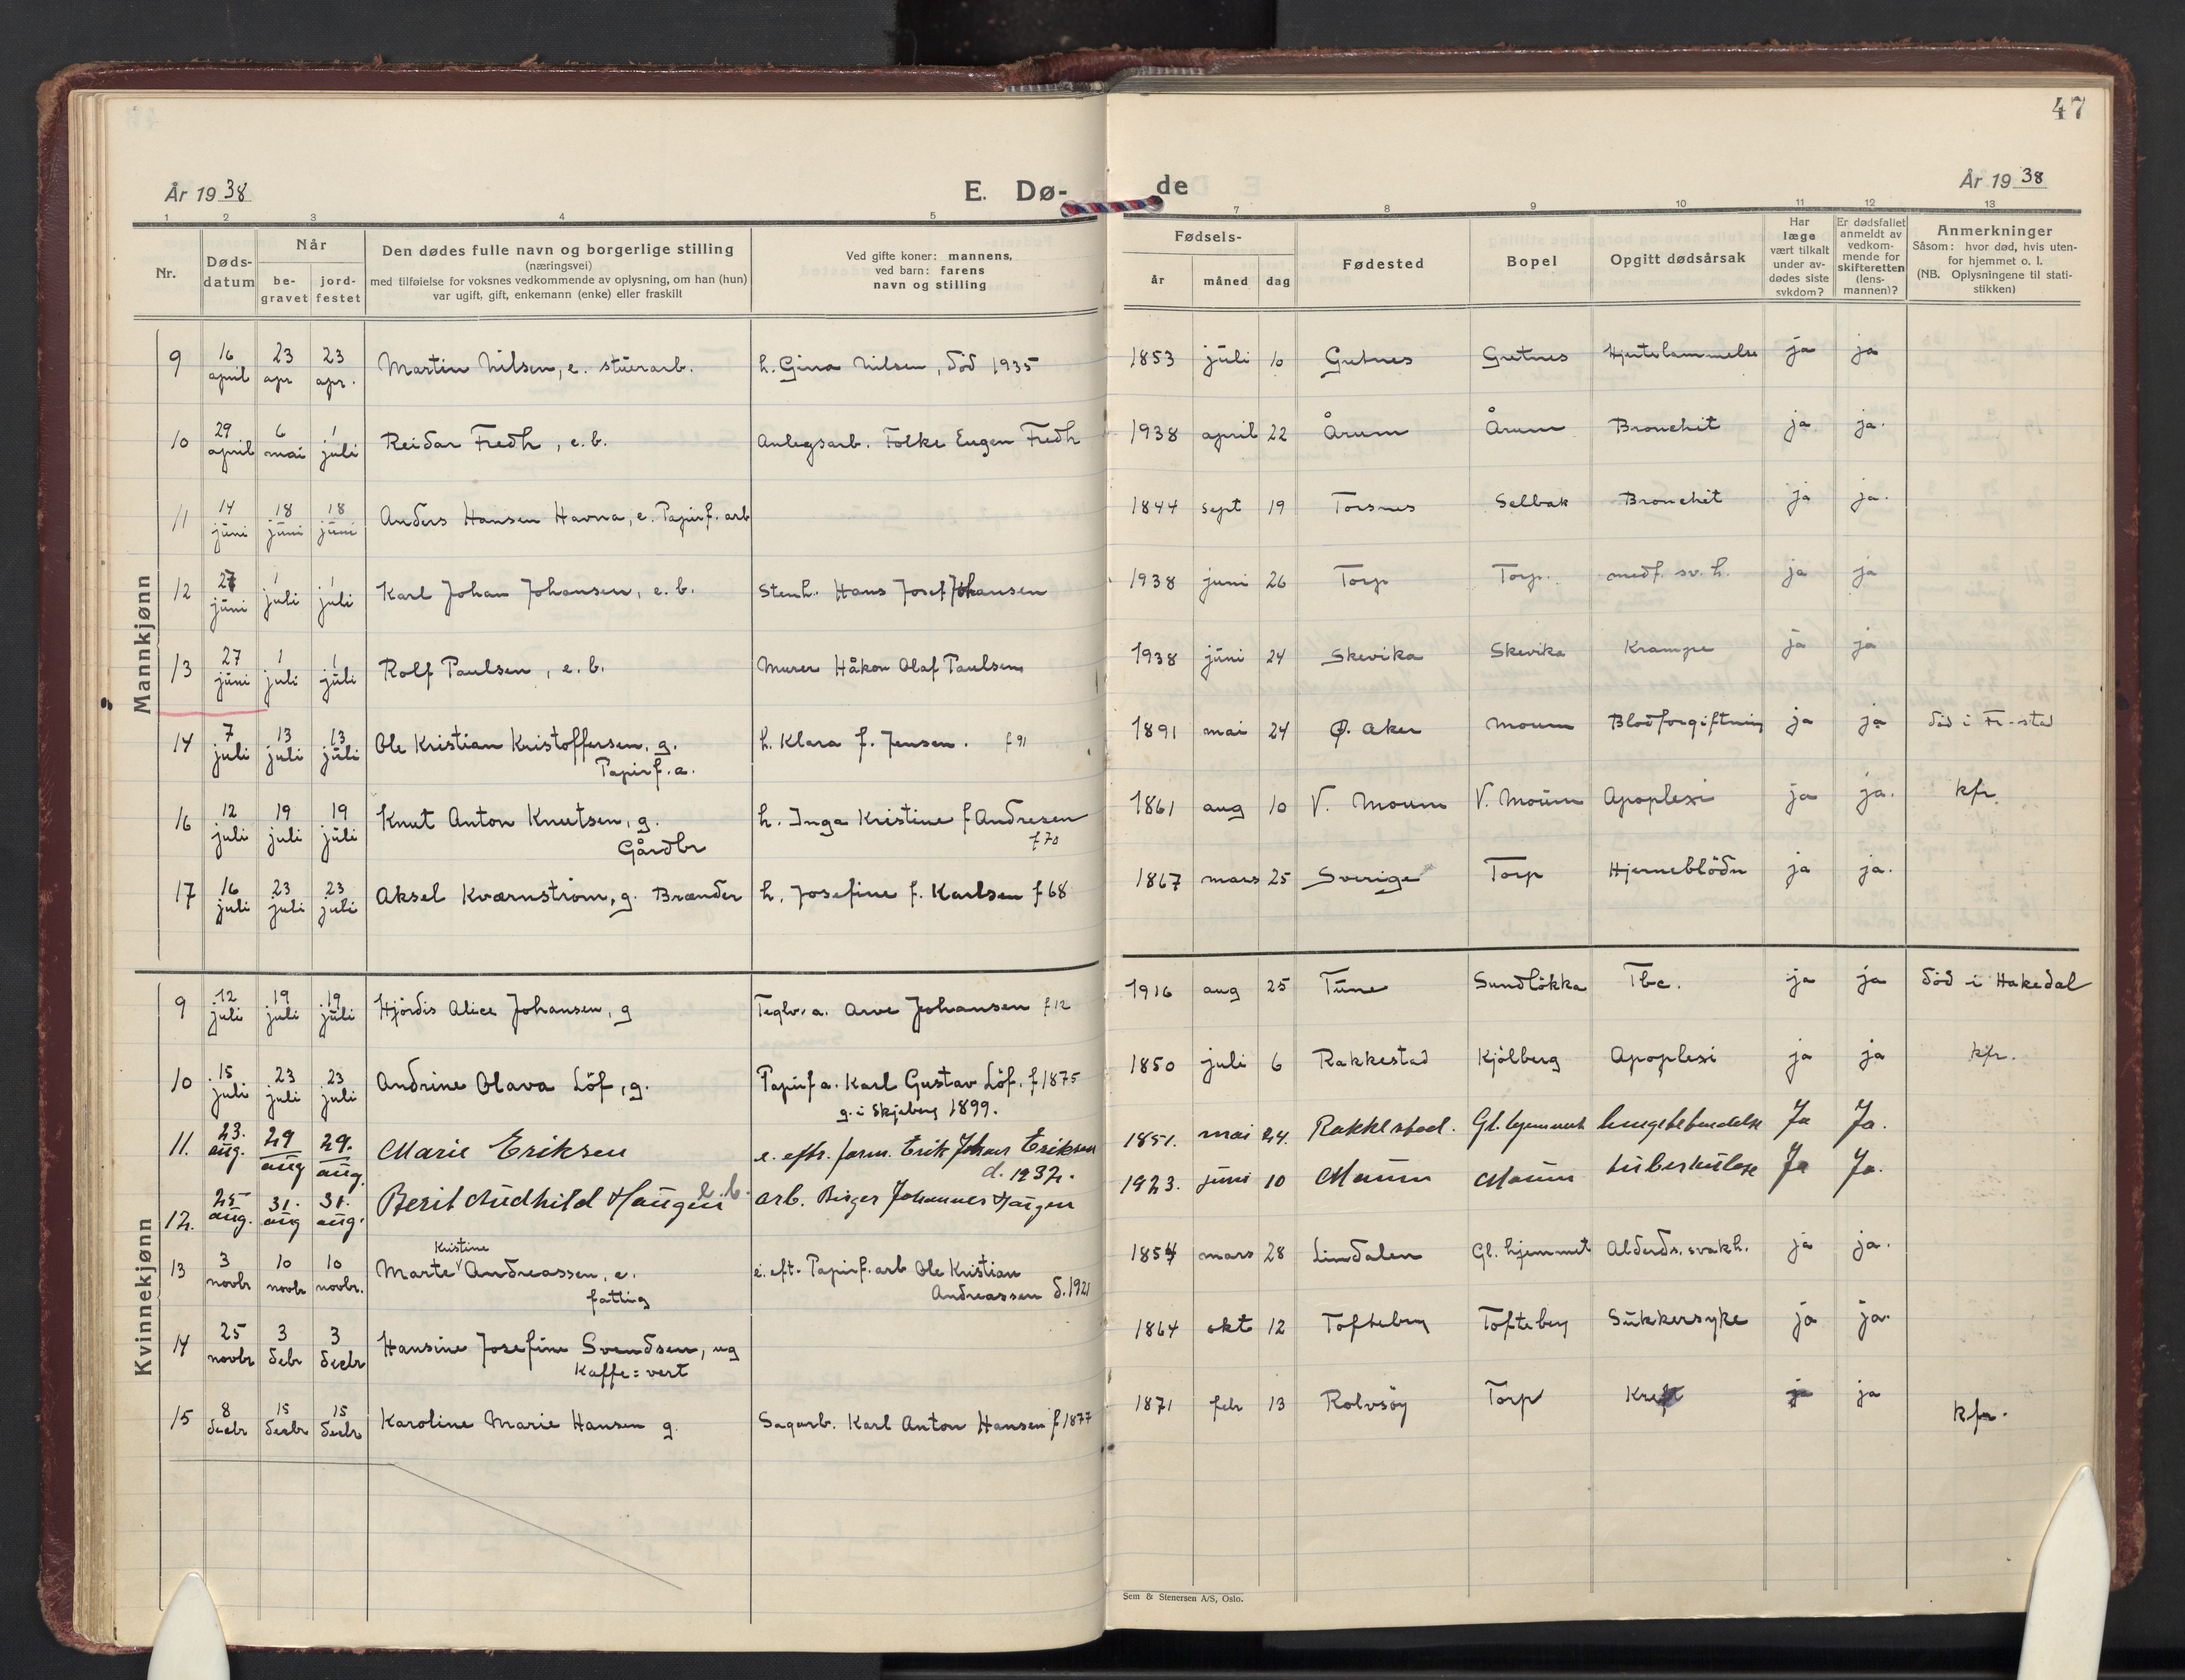 47
År 1938
E. Dø-
de
År 1938
1 2 3 4 5 7 8 9 10 11 12 13
Nr.
Døds-
datum
Når
be-
gravet
jord-
festet
Den dødes fulle navn og borgerlige stilling
(næringsvei)
med tilføielse for voksnes vedkommende av oplysning, om han (hun)
var ugift, gift, enkemann (enke) eller fraskilt
Ved gifte koner: mannens,
ved barn: farens
navn og stilling
Fødsels-
år måned dag
Fødested
Bopel
Opgitt dødsårsak
Har
læge
vært tilkalt
under av-
dødes siste
sykdom?
Er dødsfallet
anmeldt av
vedkom-
mende for
skifteretten
(lens-
mannen)?
Anmerkninger
Såsom: hvor død, hvis uten-
for hjemmet o. l.
(NB. Oplysningene til stati-
stikken)
Mannkjønn
9 16 april 23 apr 23 apr. Martin Nilsen, e. stuerarb. h. Gina Nilsen, död 1935 1853 juli 10 Gretnes Gretnes Hjertelammelse ja ja
10 29 april 6 mai 1 juli Reidar Fredh, e. b. Anlegsarb. Folke Eugen Fredh 1938 april 22 Årum Årum Bronchit ja ja.
11 14 juni 18 juni 18 juni Anders Hansen Havna, e. Papirf. arb 1844 sept 19 Torsnes Selbak Bronchit ja ja.
12 27 juni 1 juli 1 juli Karl Johan Johansen, e. b. Stenh. Hans Josef Johansen 1938 juni 26 Torp Torp. medf. sv. h. ja ja
13 27 juni 1 juli 1 juli Rolf Paulsen, e. b. Murer Håkon Olaf Paulsen 1938 juni 24 Skevika Skevika Krampe ja ja
14 7 juli 13 juli 13 juli Ole Kristian Kristoffersen, g. h. Klara f. Jensen. f 91 1891 mai 24 Ø. Aker Moum Blodforgiftning ja ja död i Fr-stad
Papirf. a.
16 12 juli 19 juli 19 juli Knut Anton Knutsen, g. h. Inga Kristine f Andresen 1861 aug 10 V. Moum V. Moum Apoplexi ja ja. kfr.
Gårdbr f 70
17 16 juli 23 juli 23 juli Aksel Kværnström, g. Brænder h. Josefine f. Karlsen f 68 1867 mars 25 Sverige Torp Hjerneblödn ja ja.
Kvinnekjønn
9 12 juli 19 juli 19 juli Hjördis Alice Johansen, g Teglv. a. Arve Johansen f 12 1916 aug 25 Tune Sundlökka Tbc. ja ja död i Hakedal
10 15 juli 23 juli 23 juli Andrine Olava Löf, g. Papirf a. Karl Gustav Löf, f 1875 1850 juli 6 Rakkestad Kjölberg Apoplexi ja ja kfr.
g. i Skjeberg 1899.
11. 23. aug. 29 aug 29. aug. Marie Eriksen e. eftr. form. Erik Johans Eriksen 1851. mai 24. Rakkestad. Gl. hjemmet lungebetendelse Ja Ja.
d. 1932.
12. 25 aug. 31. aug 31. aug. Berit Audhild Haugen e. b. arb. Birger Johannes Haugen 1923. juni 10 Moum Moum tuberkulose Ja Ja.
Kristine
13 3 novbr 10 novbr 10 novbr. Marte Andreassen, e. e. eft. Papirf. arb Ole Kristian 1854 mars 28 Lindalen Gl. hjemmet Alderds. svakh. ja ja.
fattig Andreassen d. 1921
14 25 novbr 3 debr 3 decbr Hansine Josefine Svendsen, ug 1864 okt 12 Tofteberg Tofteberg Sukkersyke ja ja.
Kaffe=vert
15 8 decbr 15 decbr 15 decbr Karoline Marie Hansen g. Sagarb. Karl Anton Hansen f 1877 1871 febr 13 Rolvsöy Torp Kreft ja ja kfr.
Sem & Stenersen A/S, Oslo.